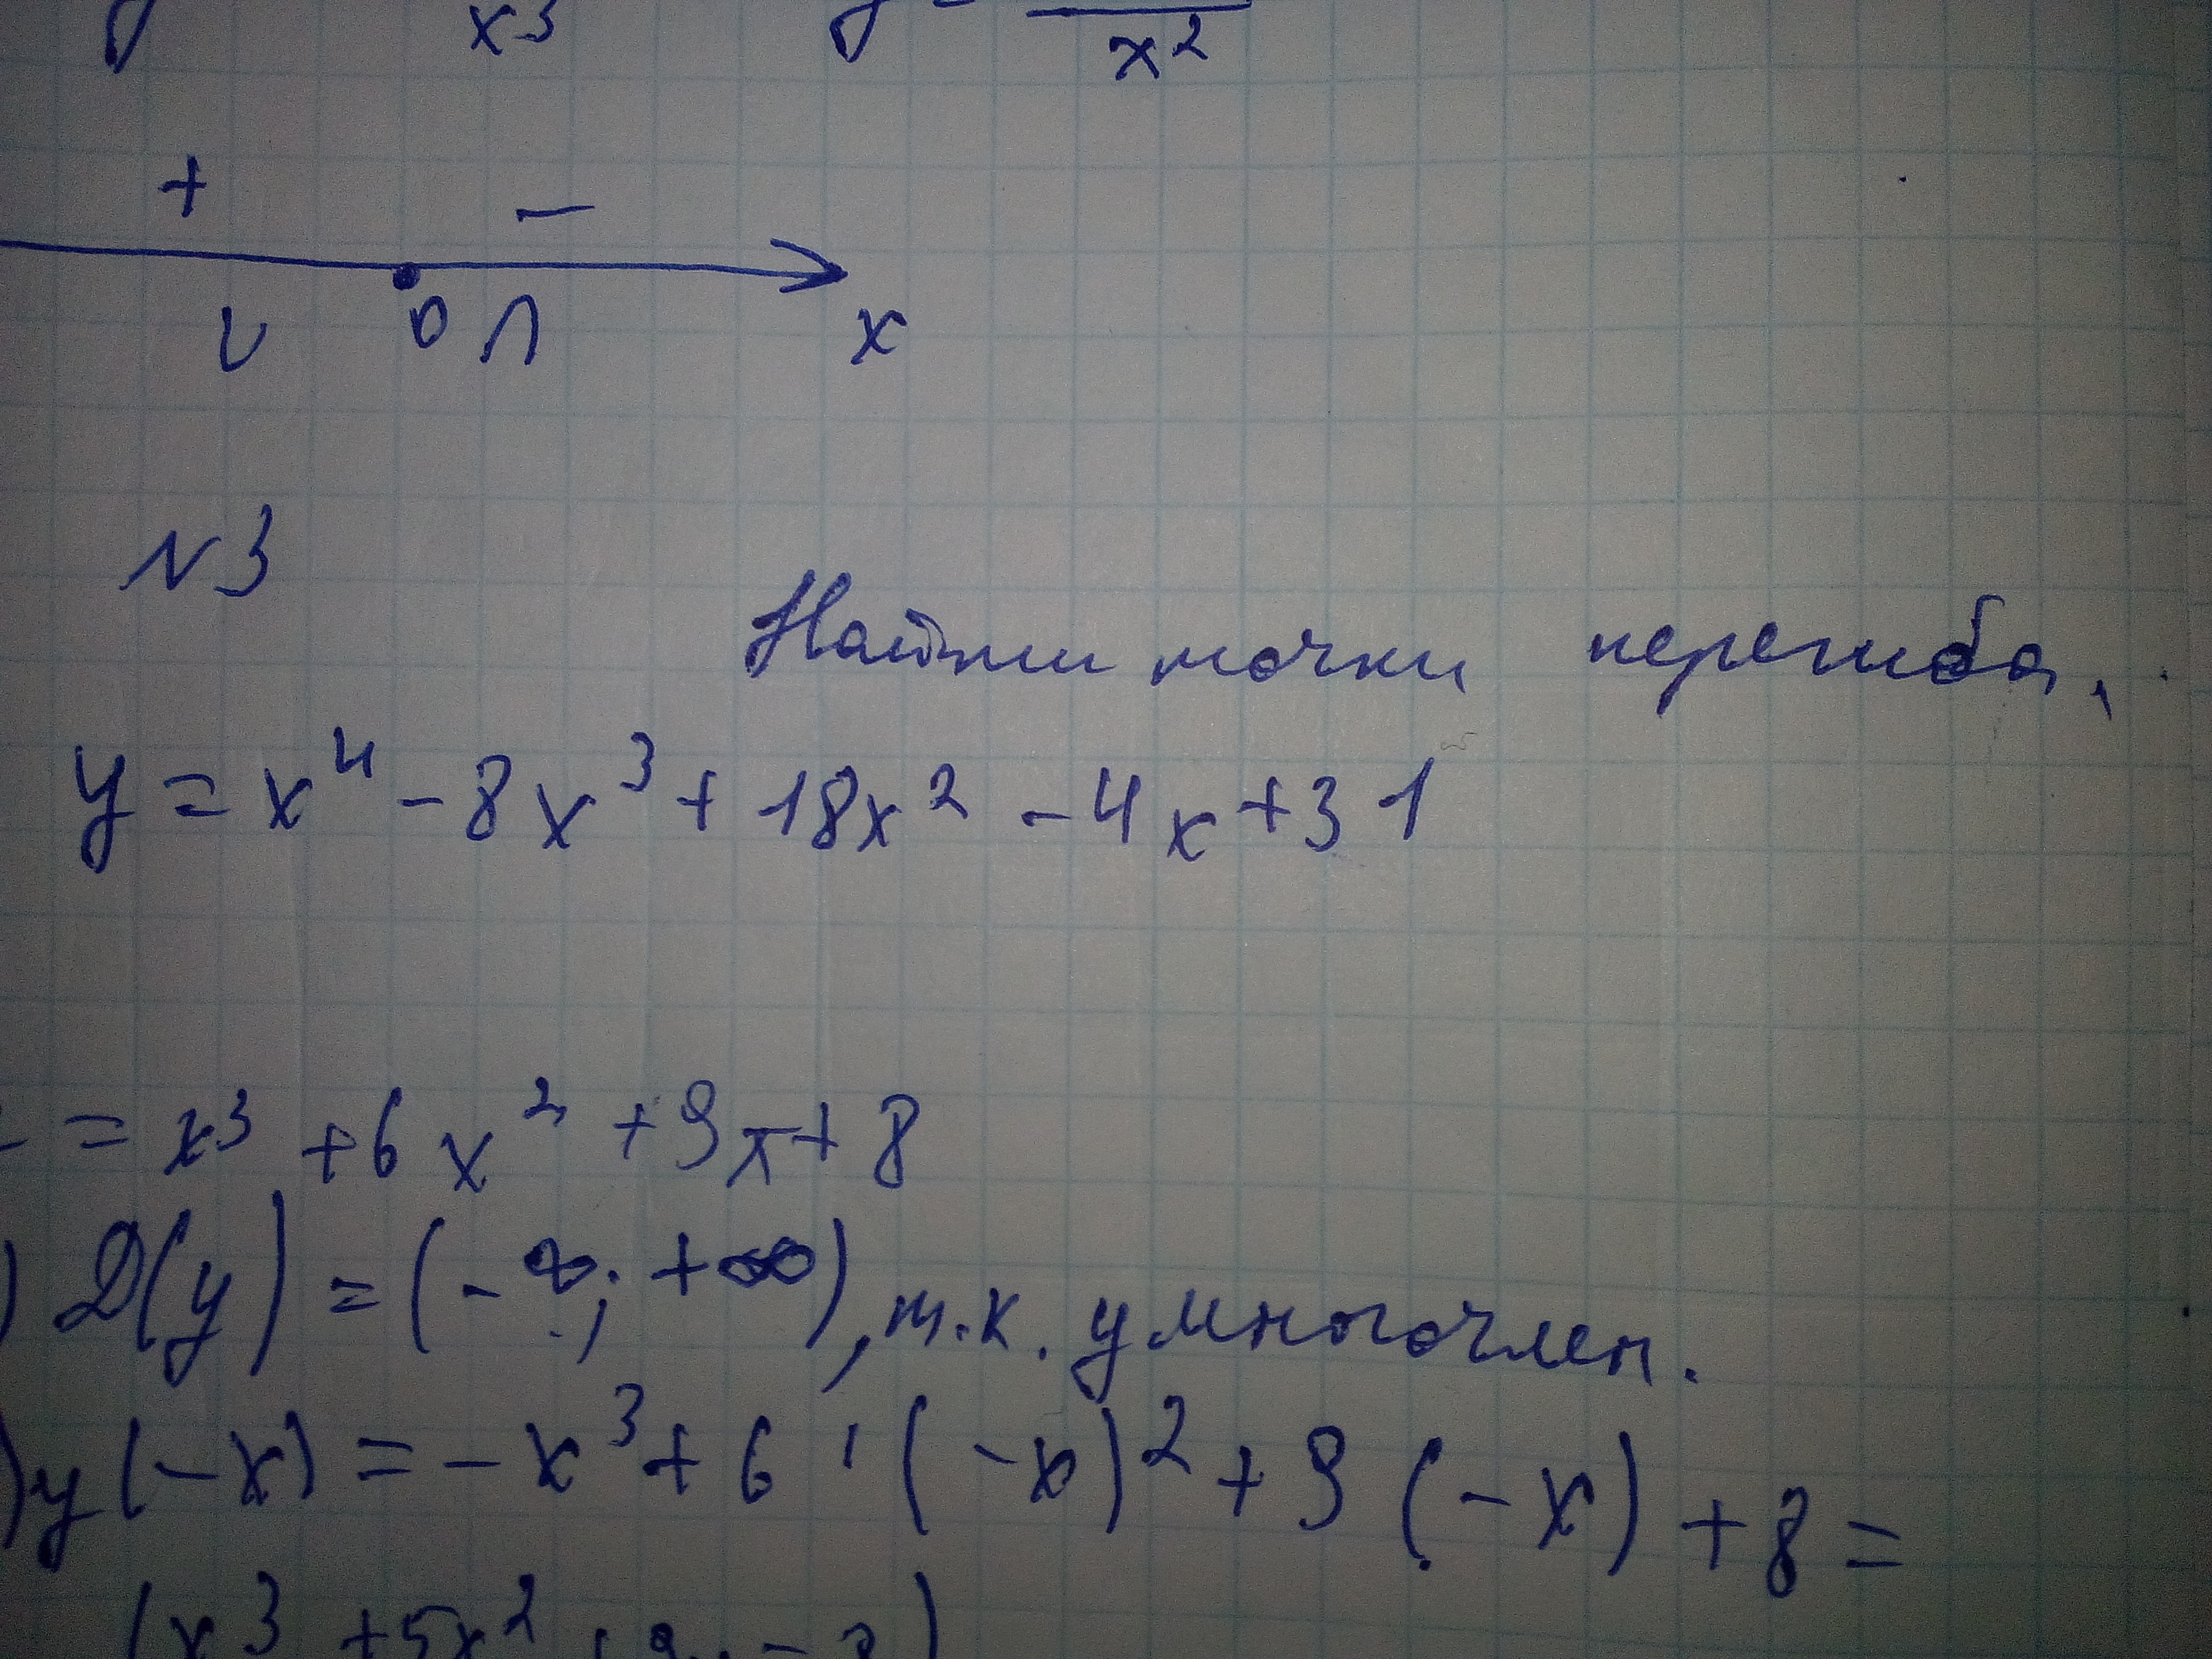 x³ y =
x²
+ −
∪ 0 ∩ x
N3
Найти точки перегиба.
y = x⁴ - 8x³ + 18x² - 4x + 31
= x³ + 6x² + 9x + 8
) D(y) = (-∞; +∞), т.к. y многочлен.
) y(-x) = -x³ + 6 · (-x)² + 9(-x) + 8 =
(x³ + 5x²